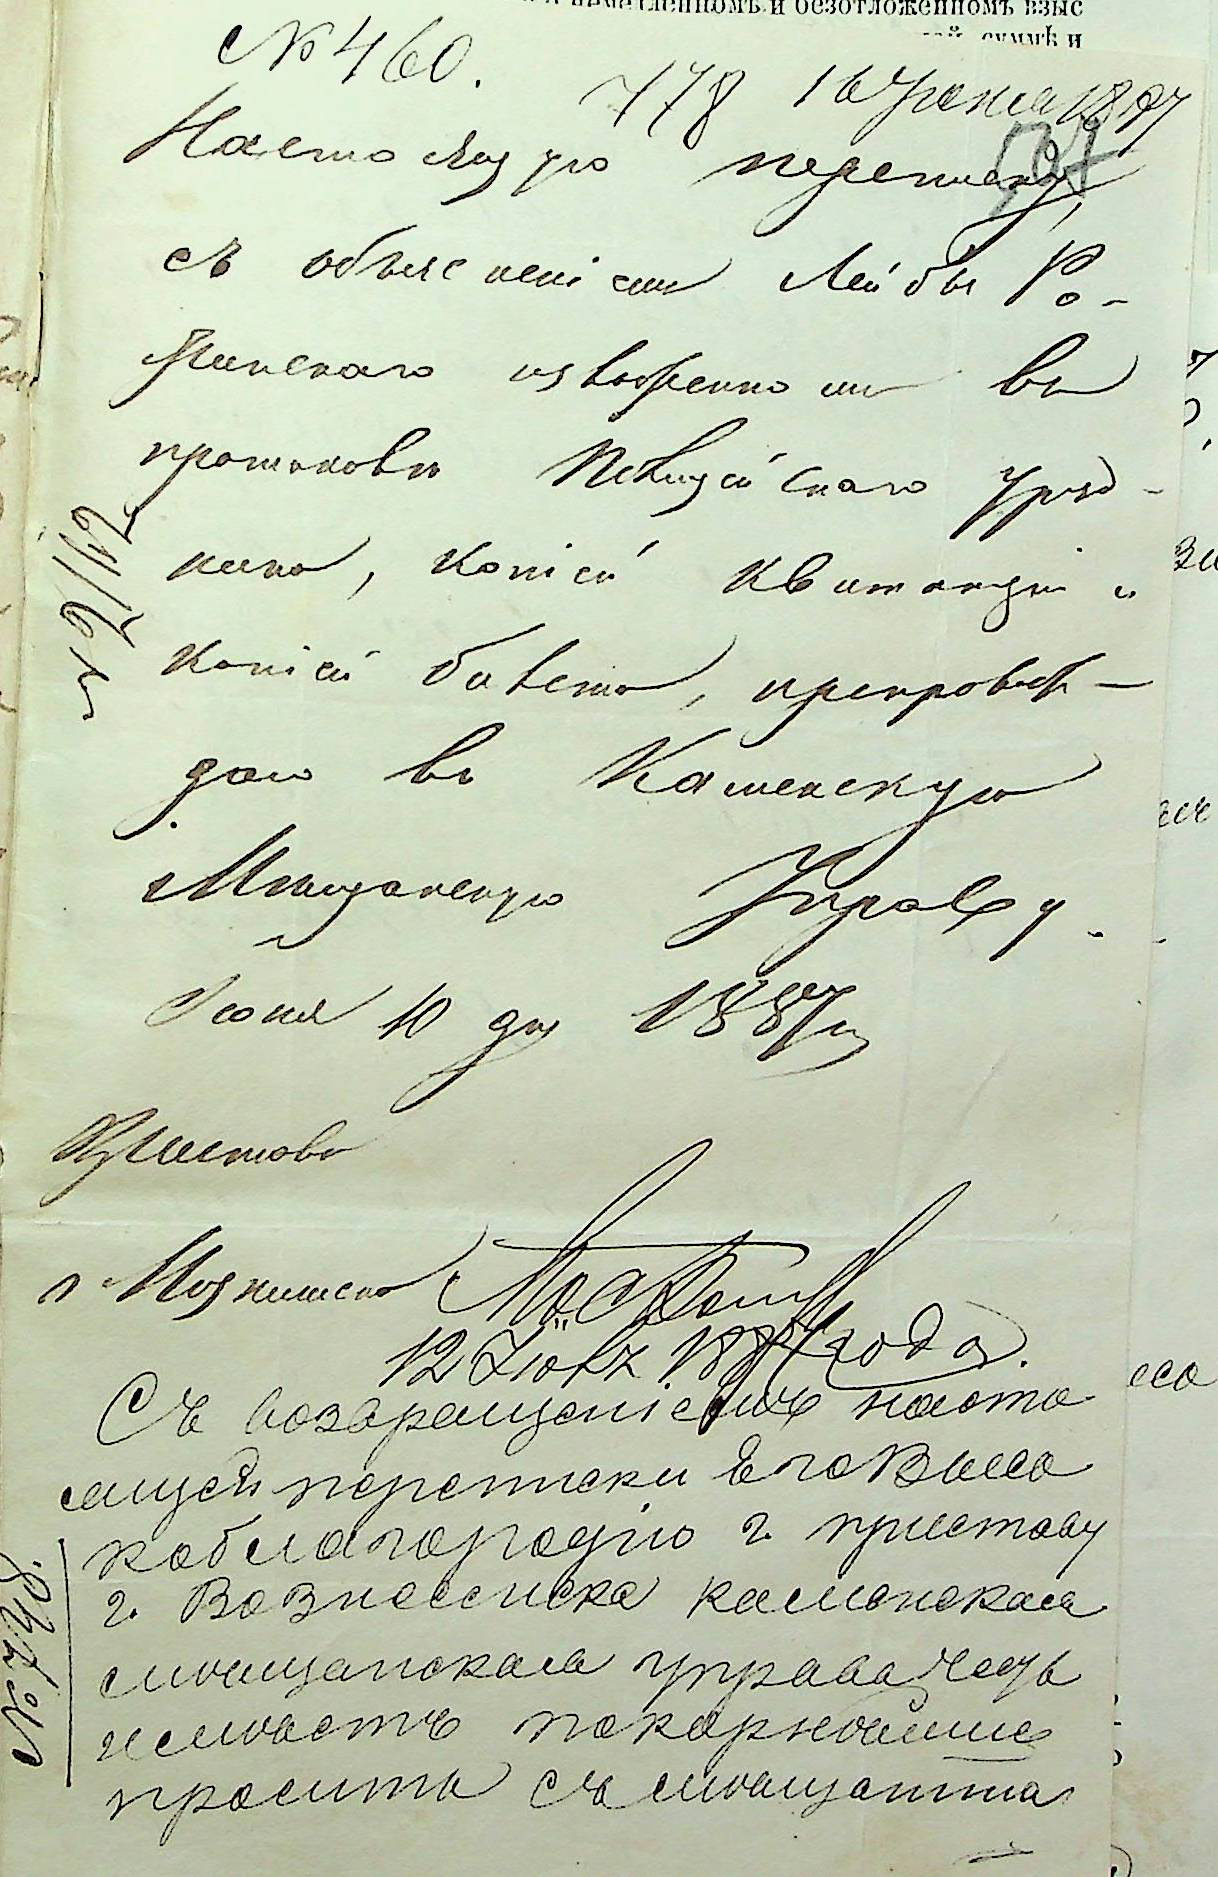 и немедленномъ и безотложенномъ взыс
суммѣ и
№ 460.
778 16 Іюня 1887
Настоящую переписку,
съ объясненіемъ Лейбы Ро-
жинскаго изложенномъ въ
протоколѣ Полицейскаго уряд-
ника, копіей квитанціи и
копіей билета, препровож-
даю въ Каменскую
Мѣщанскую Управу.
Іюня 10 дня 1887 г.
Приставъ
12 Іюня 1887 года.
Съ возвращеніемъ насто
ящей переписки Его Высо
коблагородію г. приставу
г. Вознесенска каменская
мѣщанская управа честь
имѣетъ покорнѣйше
просить съ мѣщанина
№ 778.